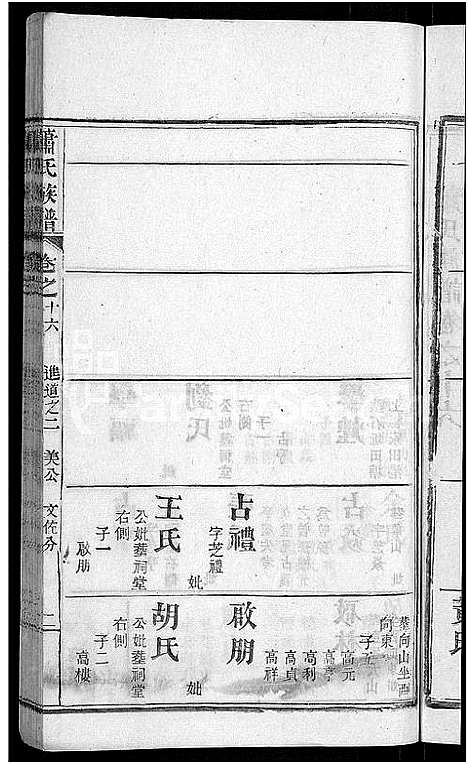 蕭氏族譜
卷之十六
進道之二
美公
文佐分
二
占禮
字芝禮
妣
王氏
公妣葬祠堂
右側
子一
啟朋
葬向山坐西
向東
子五
高元
高亨
高利
高貞
高祥
啟朋
妣
胡氏
公妣葬祠堂
右側
子二
高樓